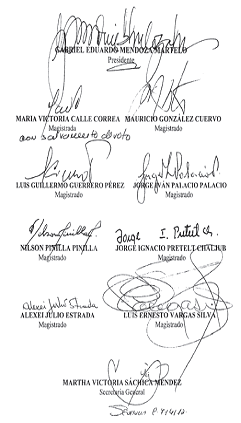 GABRIEL EDUARDO MENDOZA MARTELO
Presidente
MARIA VICTORIA CALLE CORREA
Magistrada
con salvamento de voto
MAURICIO GONZÁLEZ CUERVO
Magistrado
LUIS GUILLERMO GUERRERO PÉREZ
Magistrado
Jorge I. Palacio P.
JORGE IVÁN PALACIO PALACIO
Magistrado
Nilson Pinilla P.
NILSON PINILLA PINILLA
Magistrado
Jorge I. Pretelt Ch.
JORGE IGNACIO PRETELT CHALJUB
Magistrado
Alexei Julio Estrada
ALEXEI JULIO ESTRADA
Magistrado
LUIS ERNESTO VARGAS SILVA
Magistrado
MARTHA VICTORIA SÁCHICA MÉNDEZ
Secretaria General